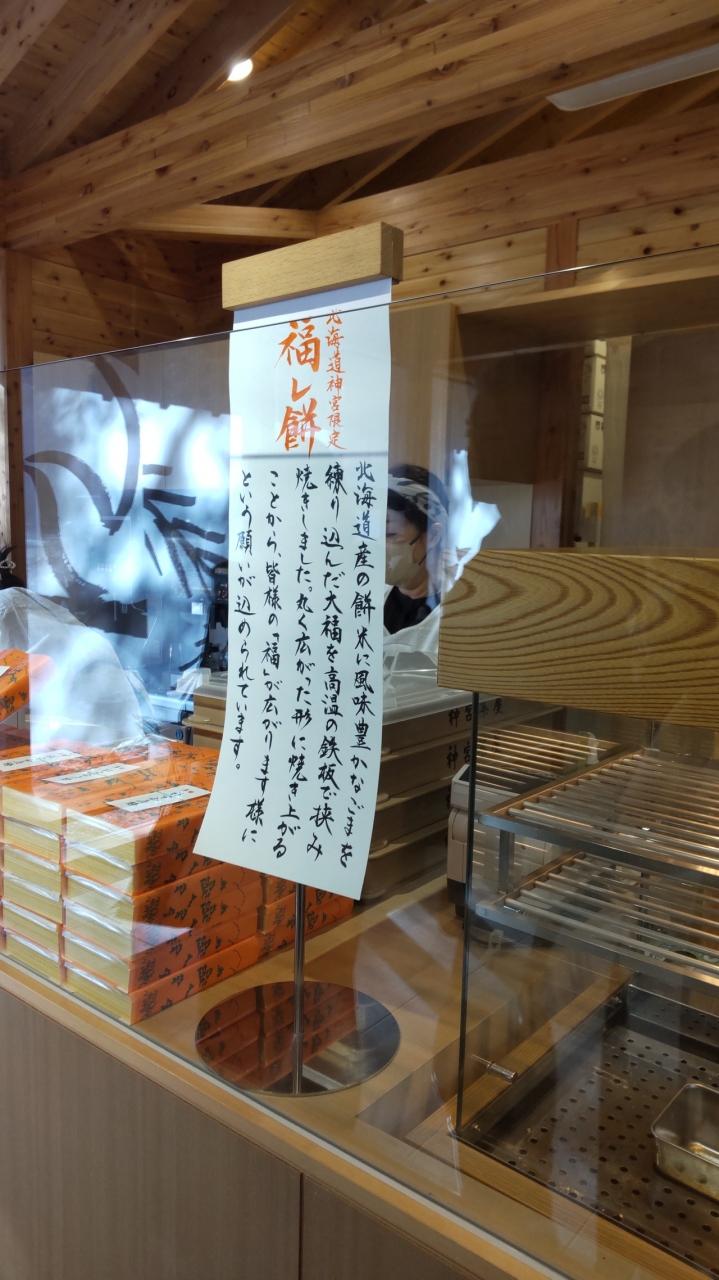 北海道神宮限定
福し餅
北海道産の餅米に風味豊かなごまを
練り込んだ大福を高温の鉄板で挟み
焼きしました。丸く広がった形に焼き上がる
ことから、皆様の「福」が広がります様に
という願いが込められています。